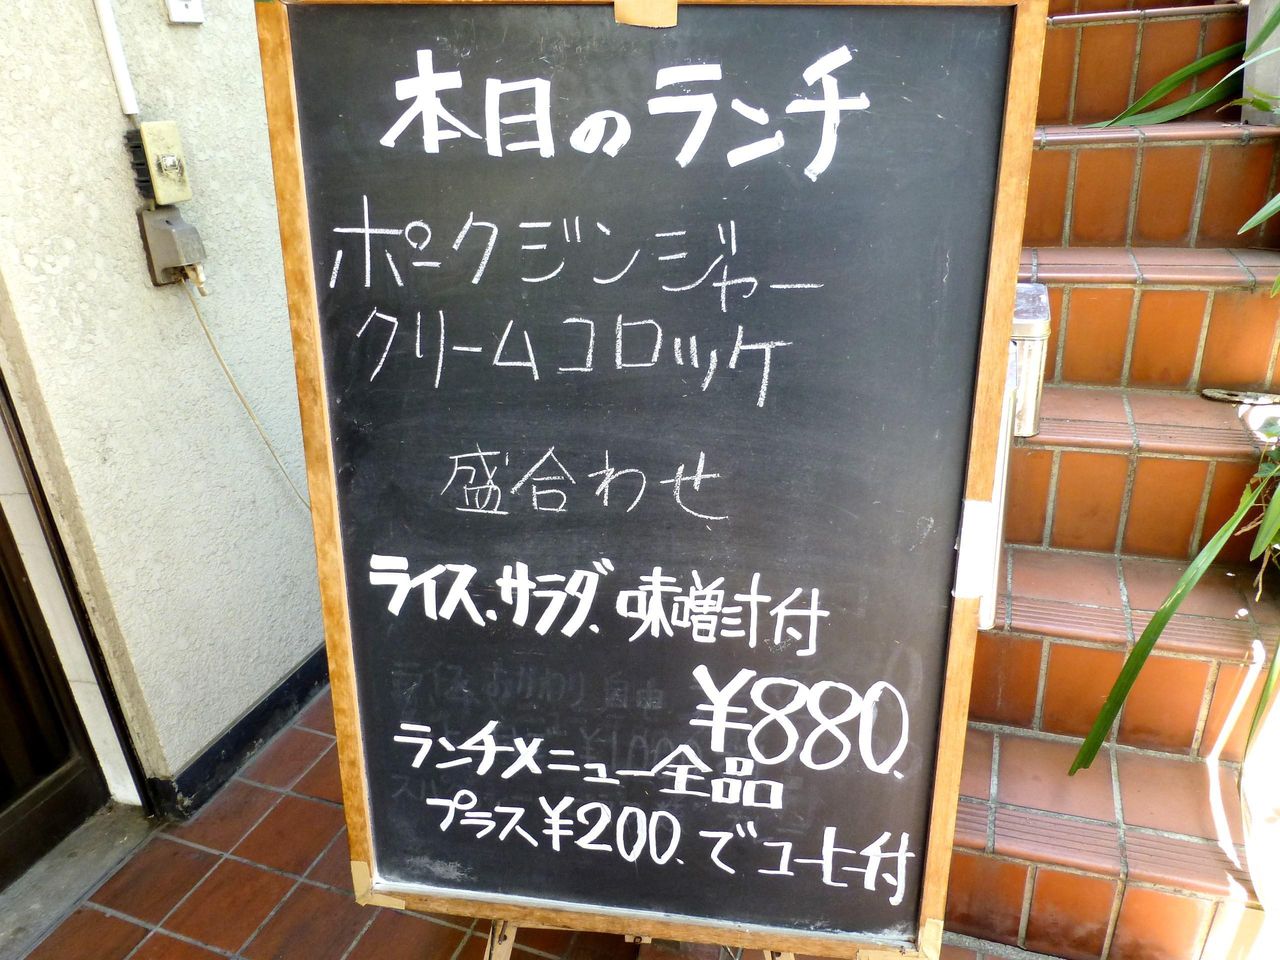 本日のランチ
ポークジンジャー
クリームコロッケ
盛合わせ
ライス、サラダ、味噌汁付
¥880.
ランチメニュー全品
プラス¥200.でコーヒー付